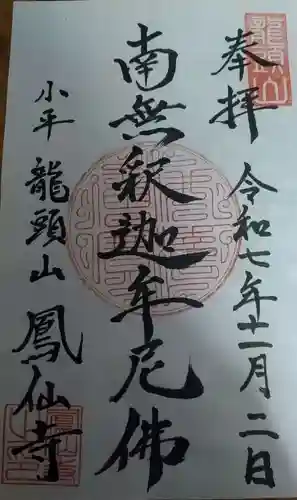 龍頭山
奉拝
令和七年十一月二日
南無釈迦牟尼佛
小平 龍頭山 鳳仙寺